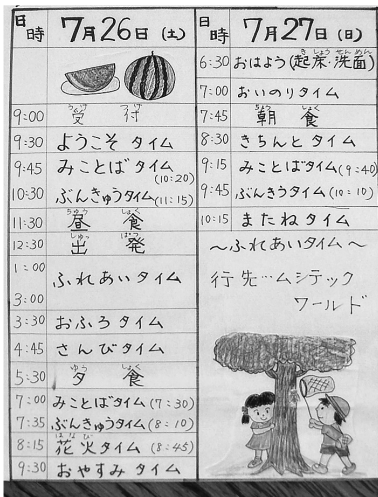 日時 7月26日(土)
9:00 受付
9:30 ようこそ タイム
9:45 みことば タイム (10:20)
10:30 ぶんきゅうタイム (11:15)
11:30 昼食
12:30 出発
1:00 3:00 ふれあいタイム
3:30 おふろ タイム
4:45 さんび タイム
5:30 夕食
7:00 みことばタイム (7:30)
7:35 ぶんきゅうタイム (8:10)
8:15 花火タイム (8:45)
9:30 おやすみ タイム
日時 7月27日(日)
6:30 おはよう(起床・洗面)
7:00 おいのりタイム
7:45 朝食
8:30 きちんと タイム
9:15 みことばタイム (9:40)
9:45 ぶんきうタイム (10:10)
10:15 またね タイム
〜ふれあいタイム〜
行先…ムシテック
ワールド